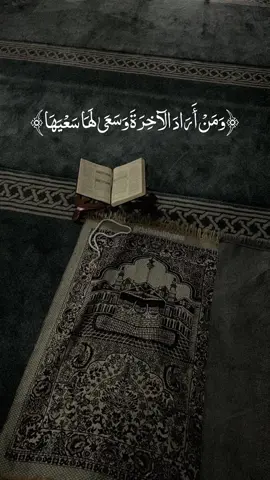 ﴿وَمَنْ أَرَادَ الْآخِرَةَ وَسَعَى لَهَا سَعْيَهَا﴾